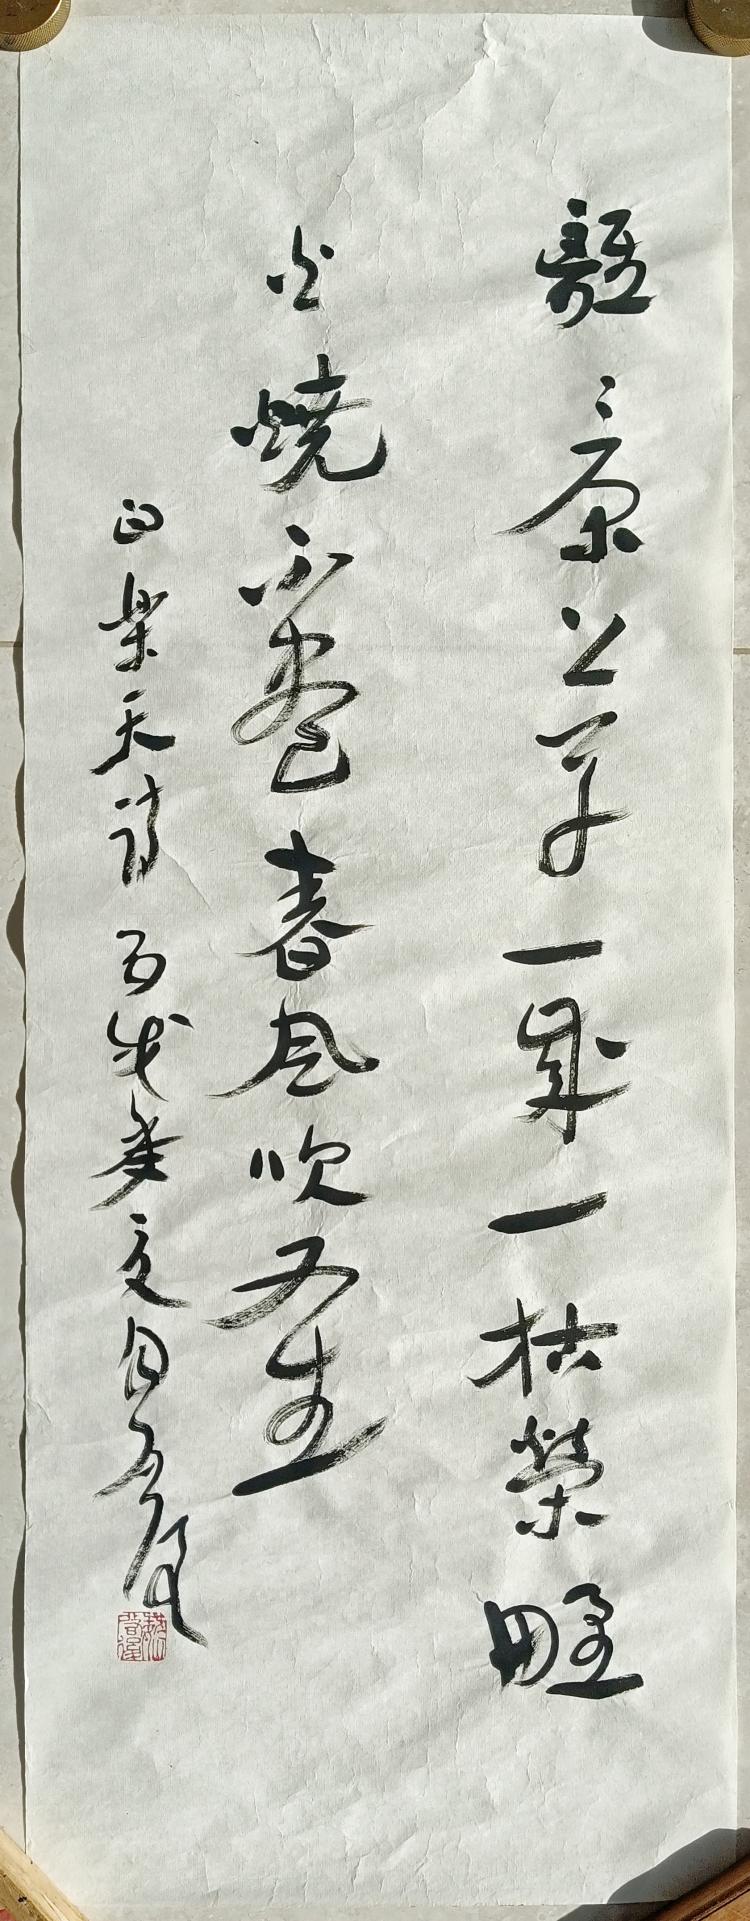 離〻原上草一歲一枯榮野
火燒不盡春風吹又生
白樂天詩丙戌季夏